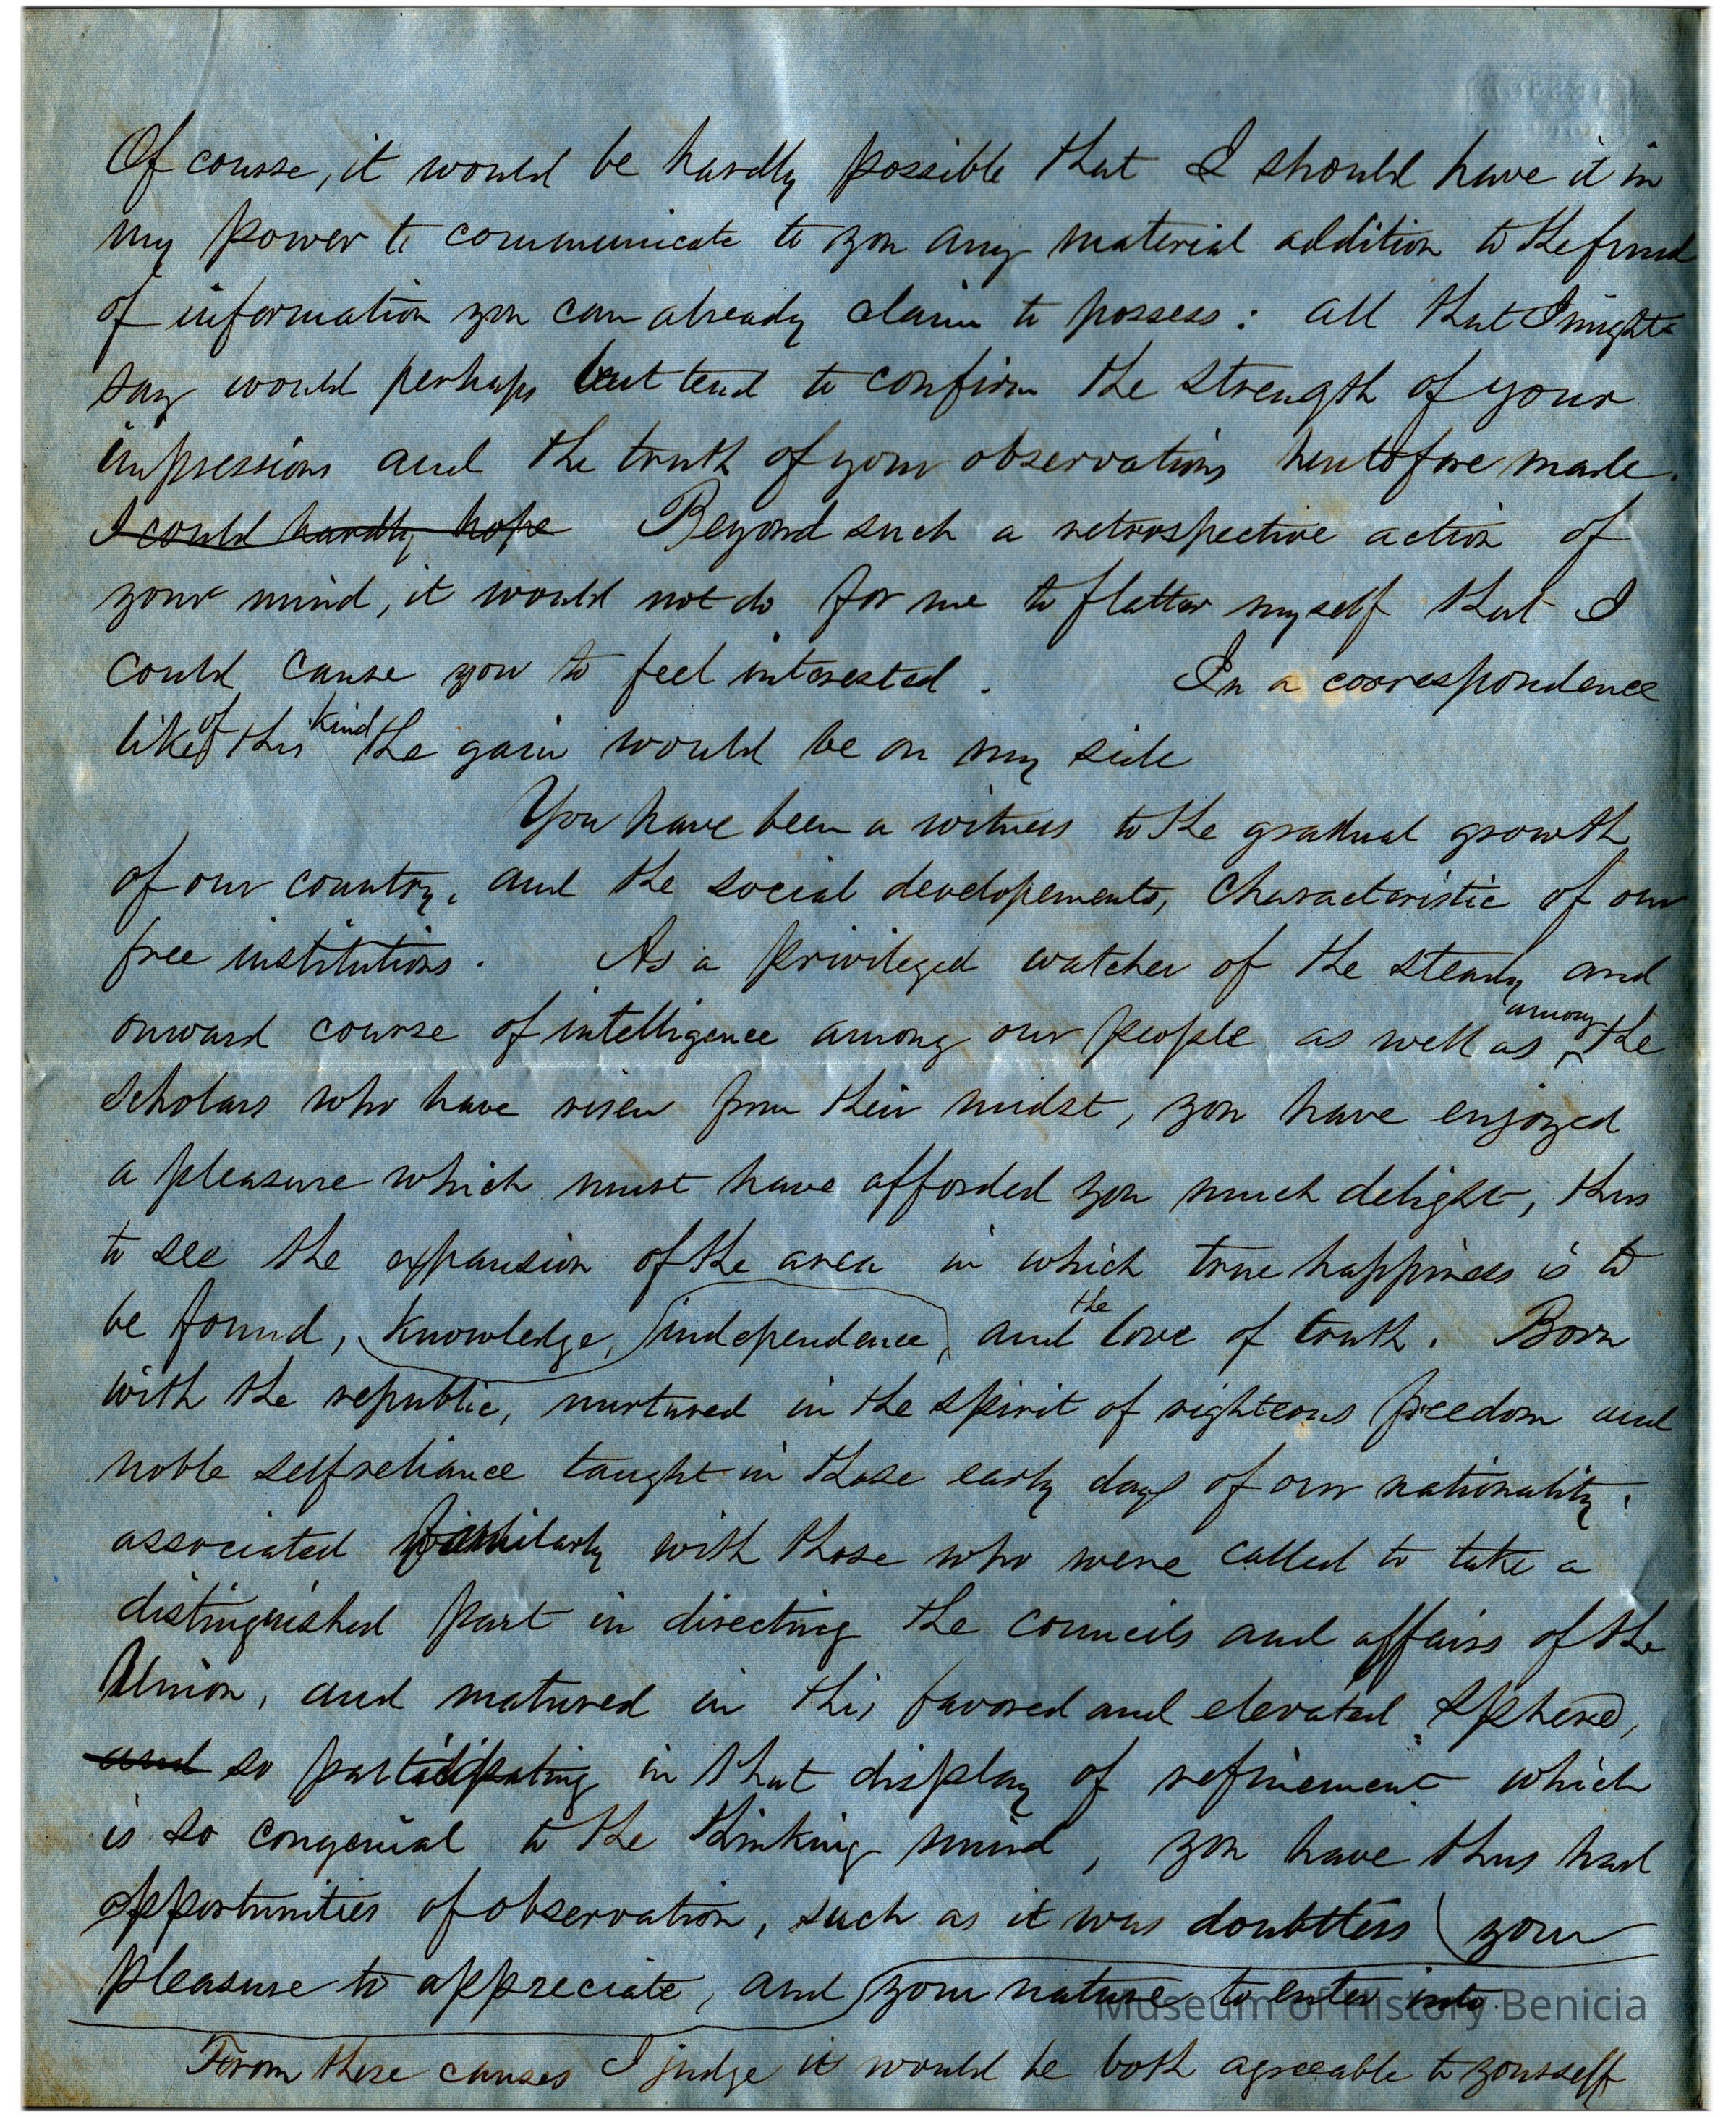 Of course, it would be hardly possible that I should have it in
my power to communicate to you any material addition to the fund
of information you can already claim to possess: all that I might
say would perhaps but tend to confirm the strength of your
impressions and the truth of your observations heretofore made.
I could hardly hope Beyond such a retrospective action of
your mind, it would not do for me to flatter myself that I
could cause you to feel interested. In a correspondence
like of this kind the gain would be on my side
You have been a witness to the gradual growth
of our country, and the social developements, characteristic of our
free institutions. As a privileged watcher of the steady and
onward course of intelligence among our people as well as among the
scholars who have risen from their midst, you have enjoyed
a pleasure which must have afforded you much delight, thus
to see the expansion of the area in which true happiness is to
be found, knowledge, independence, and the love of truth. Born
with the republic, nurtured in the spirit of righteous freedom and
noble selfreliance taught in those early days of our nationality:
associated familiarly with those who were called to take a
distinguished part in directing the councils and affairs of the
Union, and matured in this favored and elevated sphere,
and so participating in that display of refinement which
is so congenial to the thinking mind, you have thus had
opportunities of observation, such as it was doubtless your
pleasure to appreciate, and your nature to enter into.
Museum of History Benicia
From these causes I judge it would be both agreeable to yourself